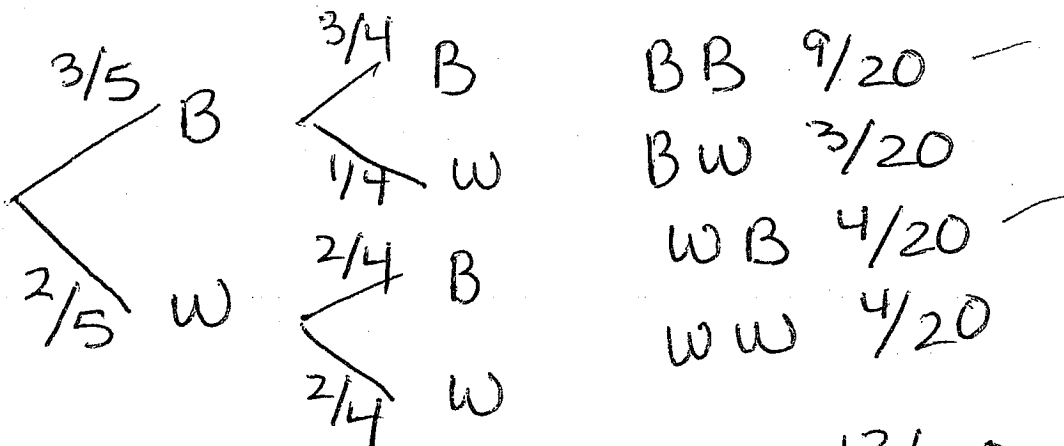 3/5 B
3/4 B
1/4 W
2/5 W
2/4 B
2/4 W
BB 9/20
BW 3/20
WB 4/20
WW 4/20